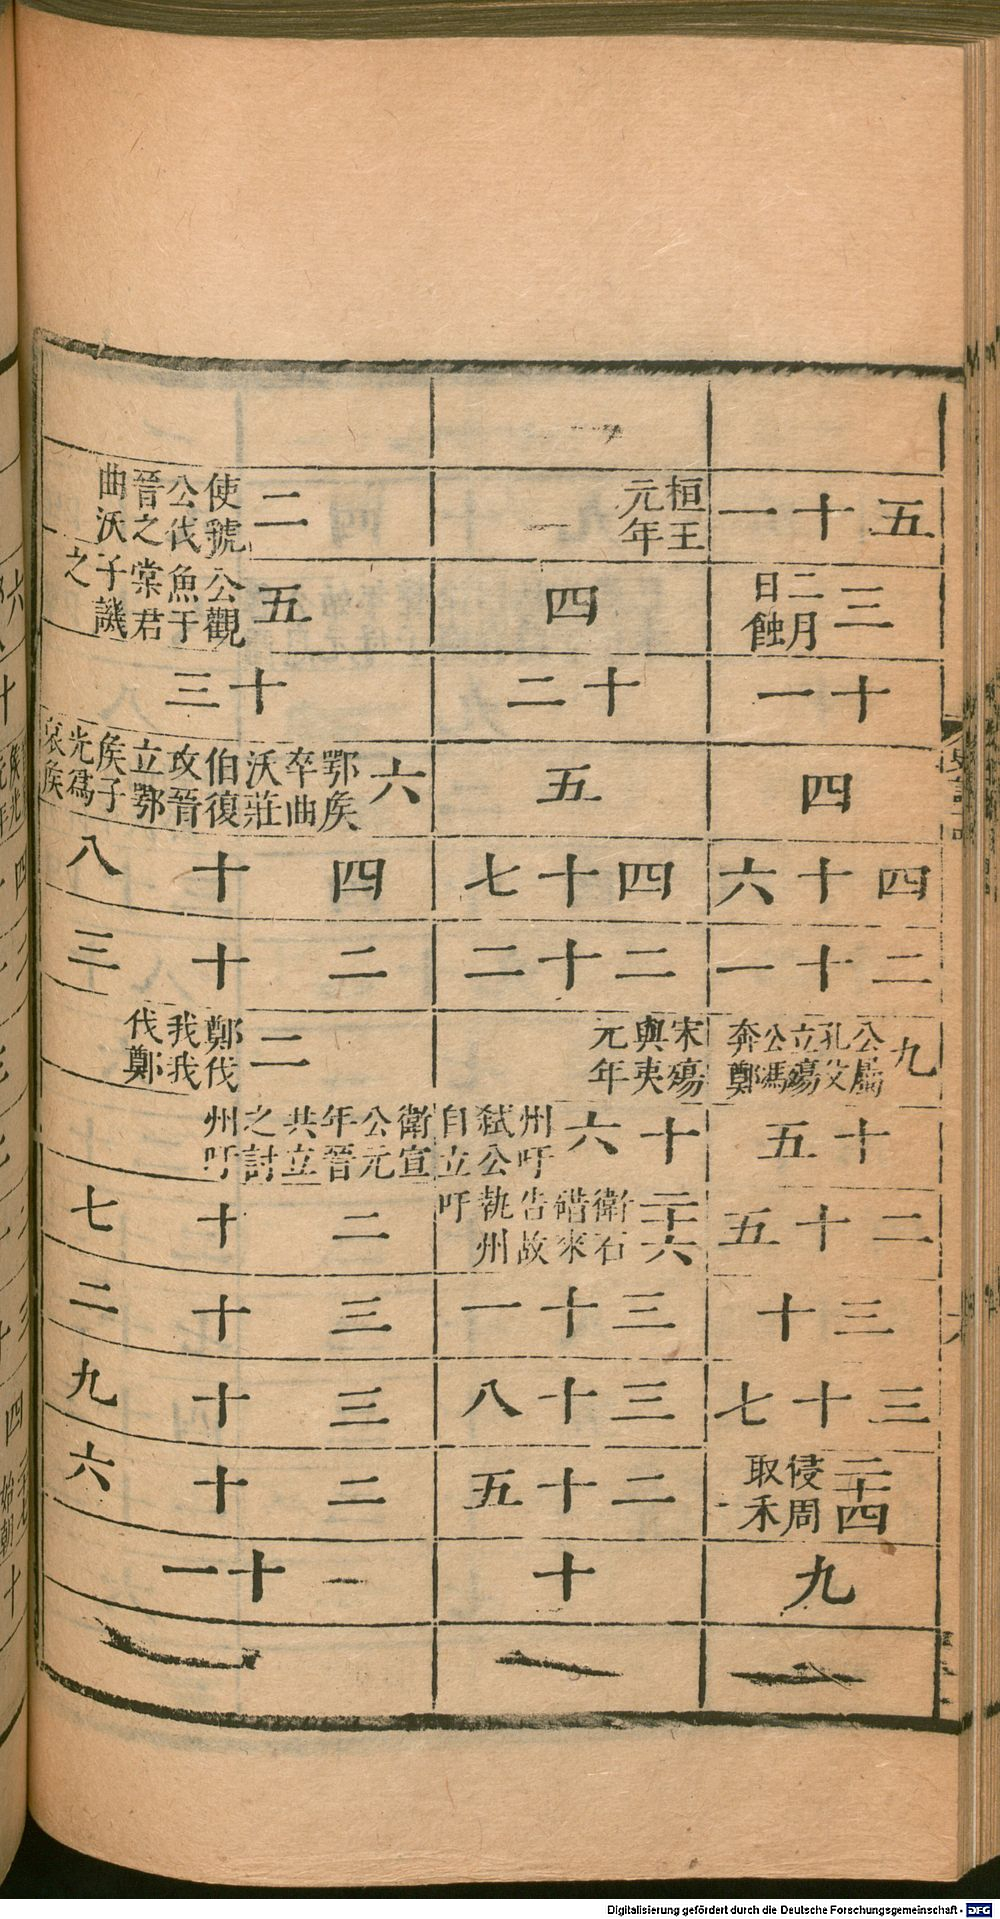 五十一
三 二月日蝕
十一
四
四十六
二十一
九 公屬孔父立殤公馮奔鄭
十五
二十五
三十
三十七
二十四 侵周取禾
九
桓王元年
四
十二
五
四十七
二十二
宋殤與夷元年
十六 州吁弑公自立
二十六 衛石碏來告故執州吁
三十一
三十八
二十五
十
二 使虢公伐晉之曲沃
五 公觀魚于棠君子譏之
十三
六 鄂矦卒曲沃莊伯復攻晉立鄂矦子光爲哀矦
四十八
二十三
二 鄭伐我我伐鄭
衛宣公元年晉共立之討州吁
二十七
三十二
三十九
二十六
十一
Digitalisierung gefördert durch die Deutsche Forschungsgemeinschaft - DFG